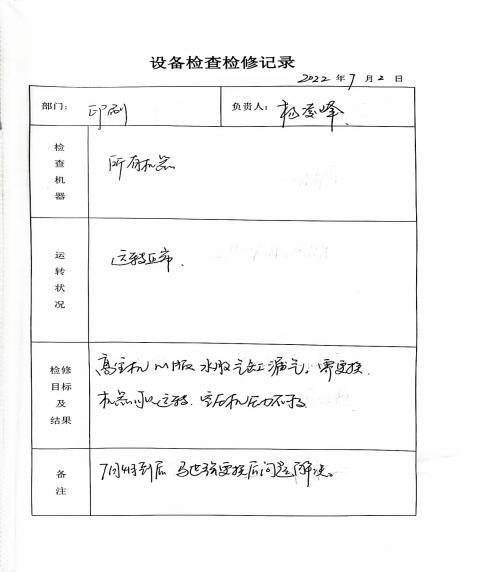 设备检查检修记录
2022年7月2日
部门：印刷 负责人：杨凌峰
检查机器 所有机器
运转状况 运转正常.
检修目标及结果 高宝机 M版 水胶气缸漏气，需更换.
机器可以运转. 空压机压力不够
备注 7月4号到后 马世强更换后问题解决。